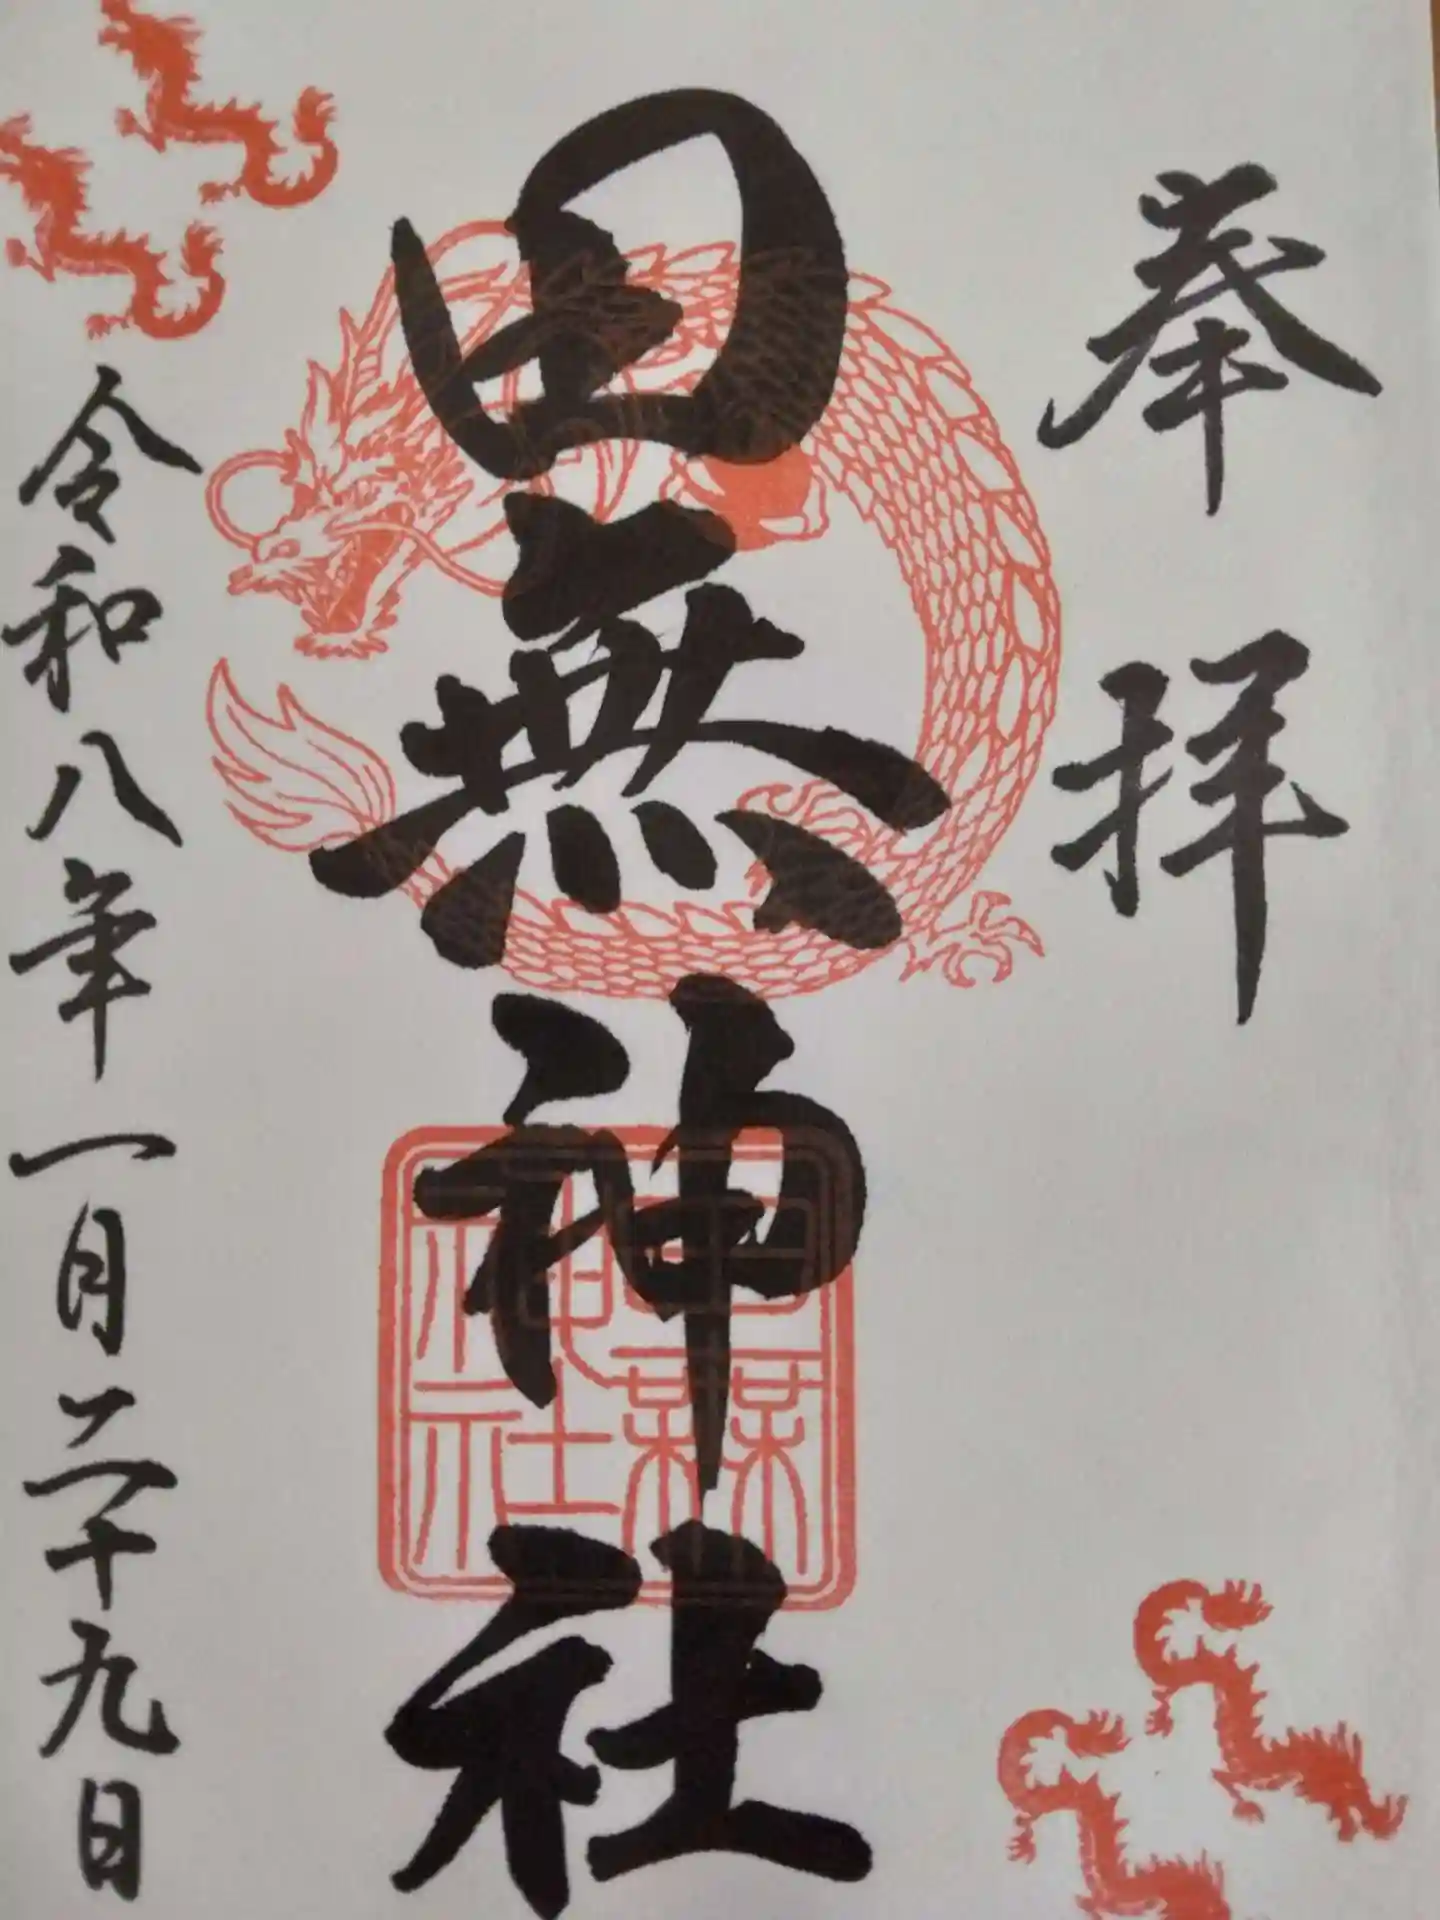 奉拝
田無神社
田無神社
令和八年一月二十九日